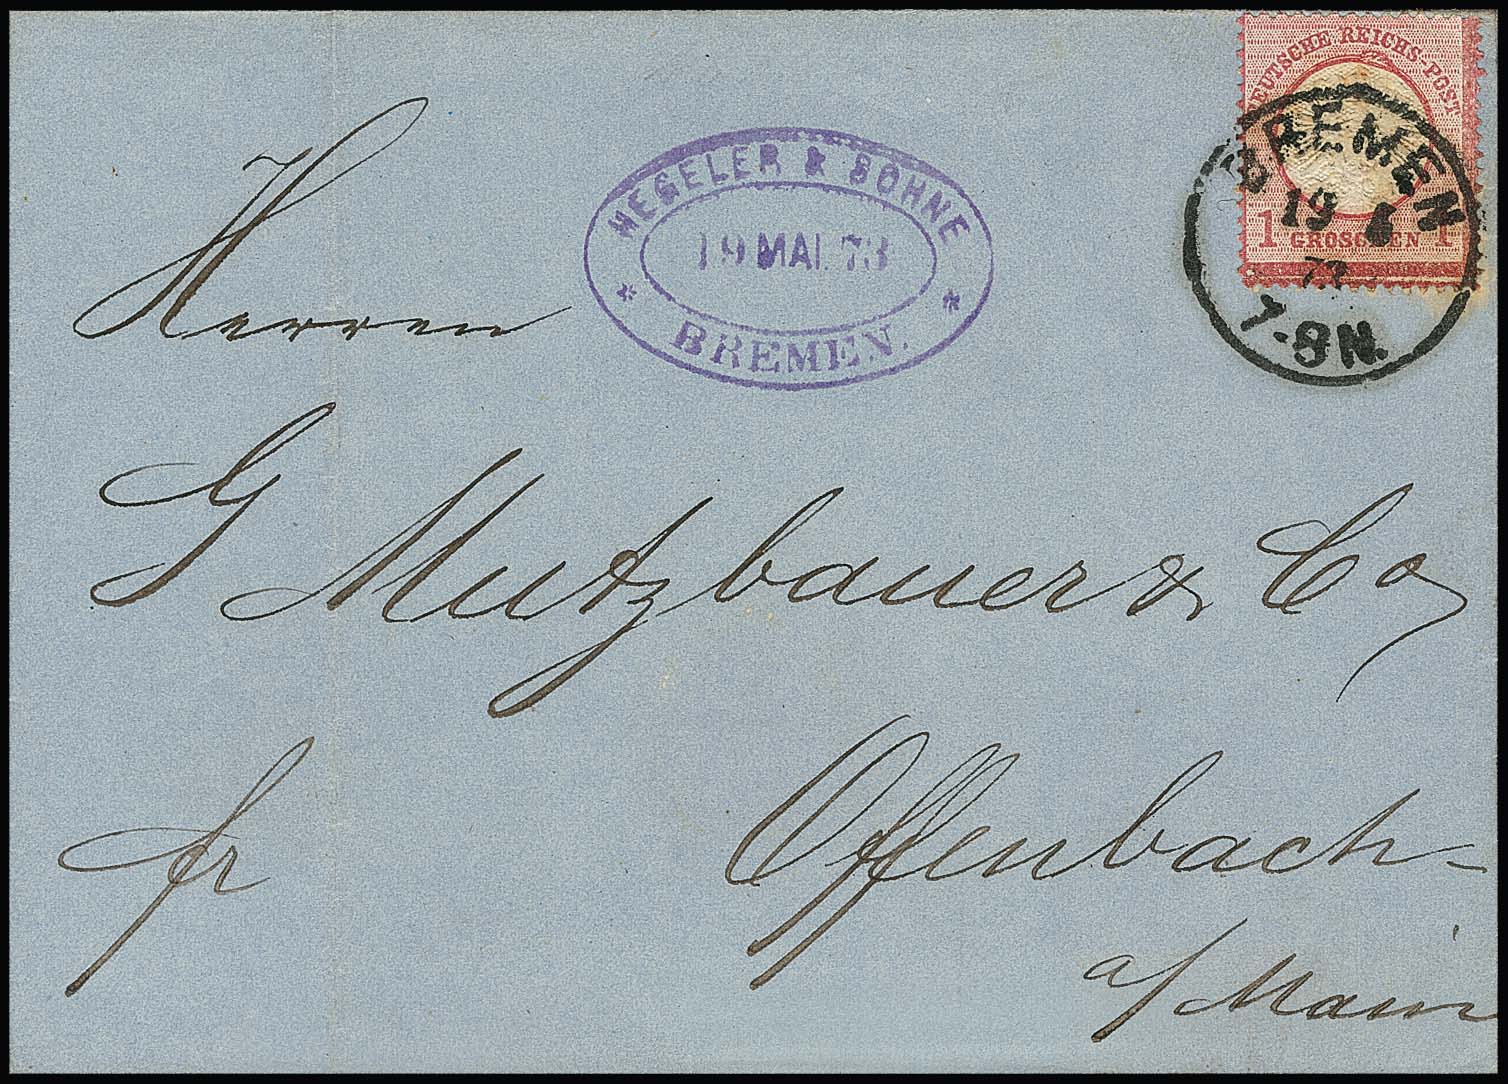 DEUTSCHE REICHS-POST
1 GROSCHEN 1
BREMEN
19
73
7-8 N.
HEGELER & SOHNE
19 MAI. 73
BREMEN.
Herren
G Mutzbauer & Co
fr
Offenbach
a/Main